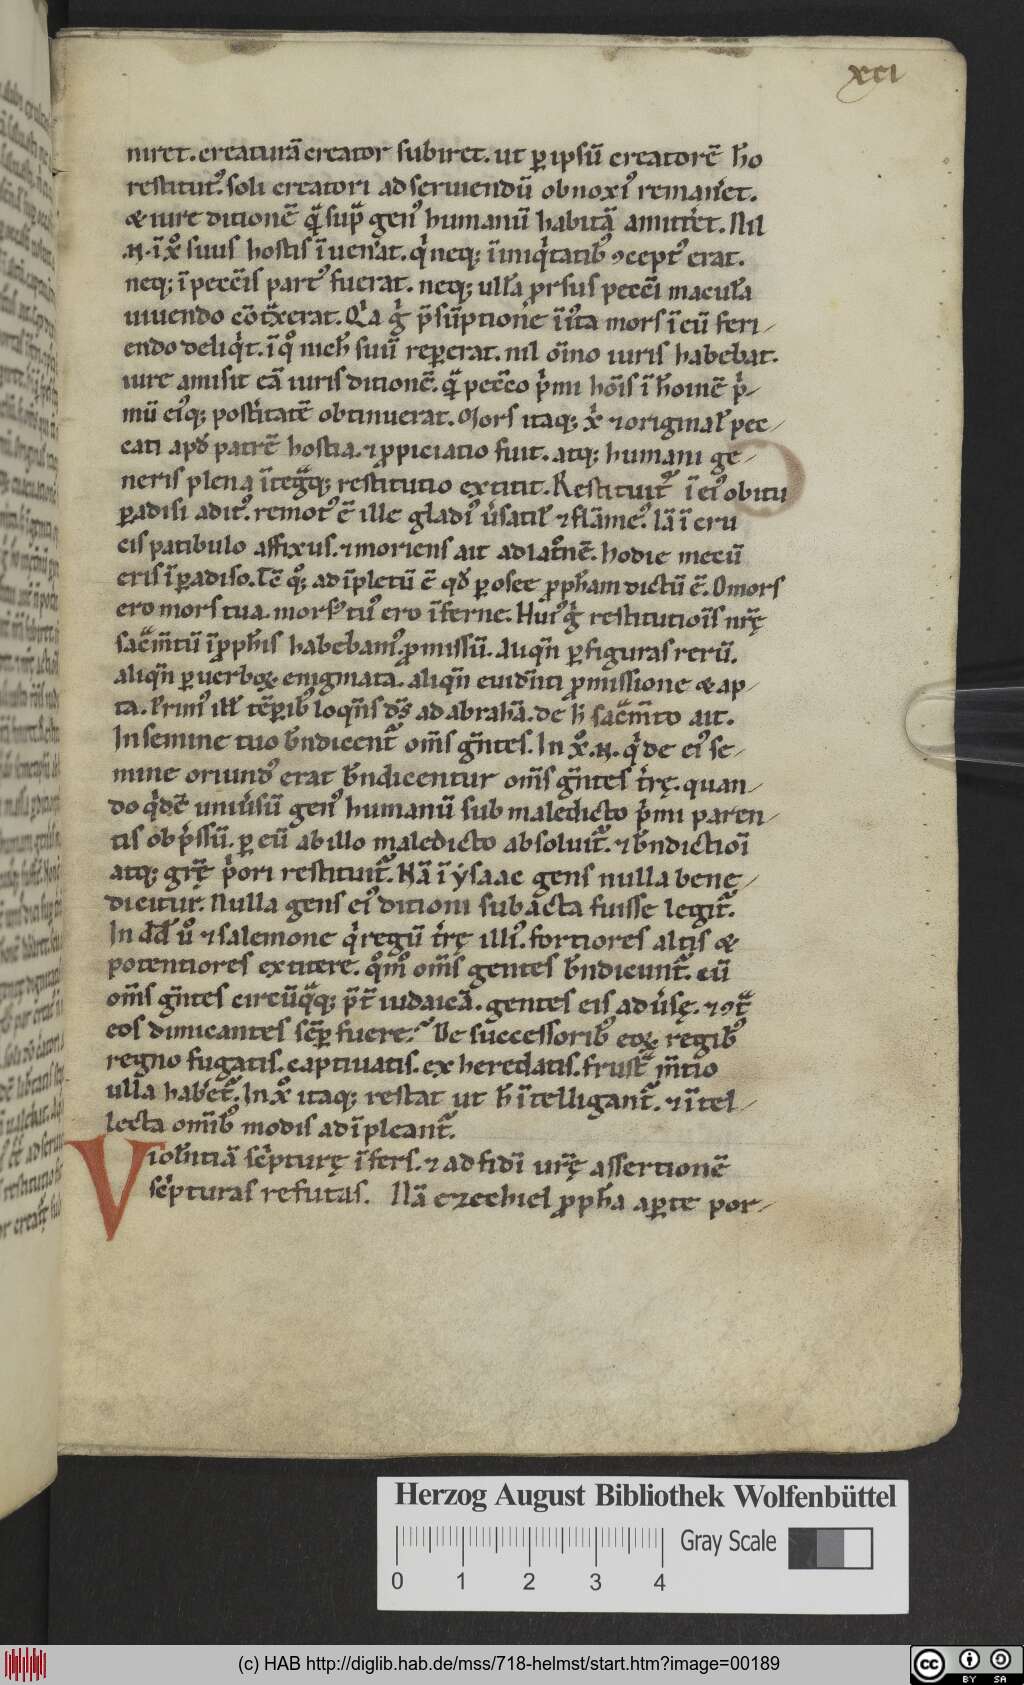 xci
niret. creaturā creator subiret. ut ꝑ ipsū creatorē h̄o
restitut᷒. soli creatori ad seruiendū obnoxi᷒ remaneret.
& iure ditionē quā sup̄ gen᷒ humanū habitā amitteret. Nil
.n. ī xp̄o suus hostis īuenerat. qi neq; ī iniqitatib᷒ ꝯcept᷒ erat.
neq; ī peccīs part᷒ fuerat. neq; ulla prsus peccī macula
uiuendo cōtᵃxerat. Qia gͥ p̄sūptione īiusta mors ī eū feri/
endo deliqit. ī qͦ nich̄ suū reꝑerat. nil om̄o iuris habebat.
iure amisit eā iuris ditionē. quā peccō pͥmi hoīs ī hoīnē pͥ/
mū ei᷒q; posteritatē obtinuerat. Mors itaq; xp̄i ⁊ original᷒ pec/
cati apd̄ patrē hostia. ⁊ ꝓpiciatio fuit. atq; humani ge/
neris plena ītegᵃq; restitutio extitit. Restituit᷑ ī ei᷒ obitu
ꝑadisi adit᷒. remot᷒ ē ille gladi᷒ ūsatil᷒ ⁊ flāme᷒. Iā ī cru
cis patibulo affixus. ⁊ moriens ait ad latͦnē. hodie mecū
eris ī ꝑadiso. Tē qͦ; ad īpletū ē qd̄ ꝑ osee ꝓph̄am dictū ē. O mors
ero mors tua. mors᷒ tu᷒ ero īferne. Hui᷒ gͥ restitutiōis nr̄ę
sacᵃm̄tū ī ꝓph̄is habebam᷒ ꝓmissū. Aliqn̄ ꝑ figuras rerū.
aliqn̄ ꝑ uerboꝝ enigmata. aliqn̄ euidn̄ti ꝓmissione & ap/
ta. Primi᷒ ill᷒ tēꝑib᷒ loqn̄s ds̄ ad abrahā. de h̄ sacᵃm̄to ait.
In semine tuo bn̄dicent᷑ om̄s gn̄tes. In xp̄o .n. qi de ei᷒ se/
mine oriund᷒ erat bn̄dicentur om̄s gn̄tes tr̄ę. quan/
do qidē uniūsū gen᷒ humanū sub maledicto pͥmi paren/
tis obpͥssū. ꝑ eū ab illo maledicto absoluit᷑. ⁊ bn̄dictioī
atq; gr̄ę pͥori restituit᷑. Nā ī ysaac gens nulla bene/
dicitur. Nulla gens ei᷒ ditioni subacta fuisse legit᷑.
In dd̄ uͦ ⁊ salemone qi regū tr̄ę illi᷒. fortiores altis &
potentiores extitere. qͦmͦ om̄s gentes bn̄dicunt᷑. cū
om̄s gn̄tes circūqᵃq; p̄t̄ iudaicā. gentes eis aduͥsę. ⁊ ꝯtᵃ
eos dimicantes sēꝑ fuere? De successorib᷒ eoꝝ regib᷒
regno fugatis. captiuatis. exheredatis. frustᵃ m̄tio
ulla habet᷑. In xp̄o itaq; restat ut h̄ ītelligant᷑. ⁊ ītel/
lecta omīb᷒ modis adīpleant᷑.
Violn̄tiā scͥpturę īfers. ⁊ ad fidī ur̄ę assertionē
scͥpturas refutas. Nā ezechiel ꝓph̄a aꝑte por/
Herzog August Bibliothek Wolfenbüttel
Gray Scale
0 1 2 3 4
(c) HAB http://diglib.hab.de/mss/718-helmst/start.htm?image=00189
cc BY SA